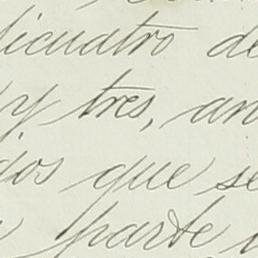 icuatro de
y tres, an
dos que se
parte